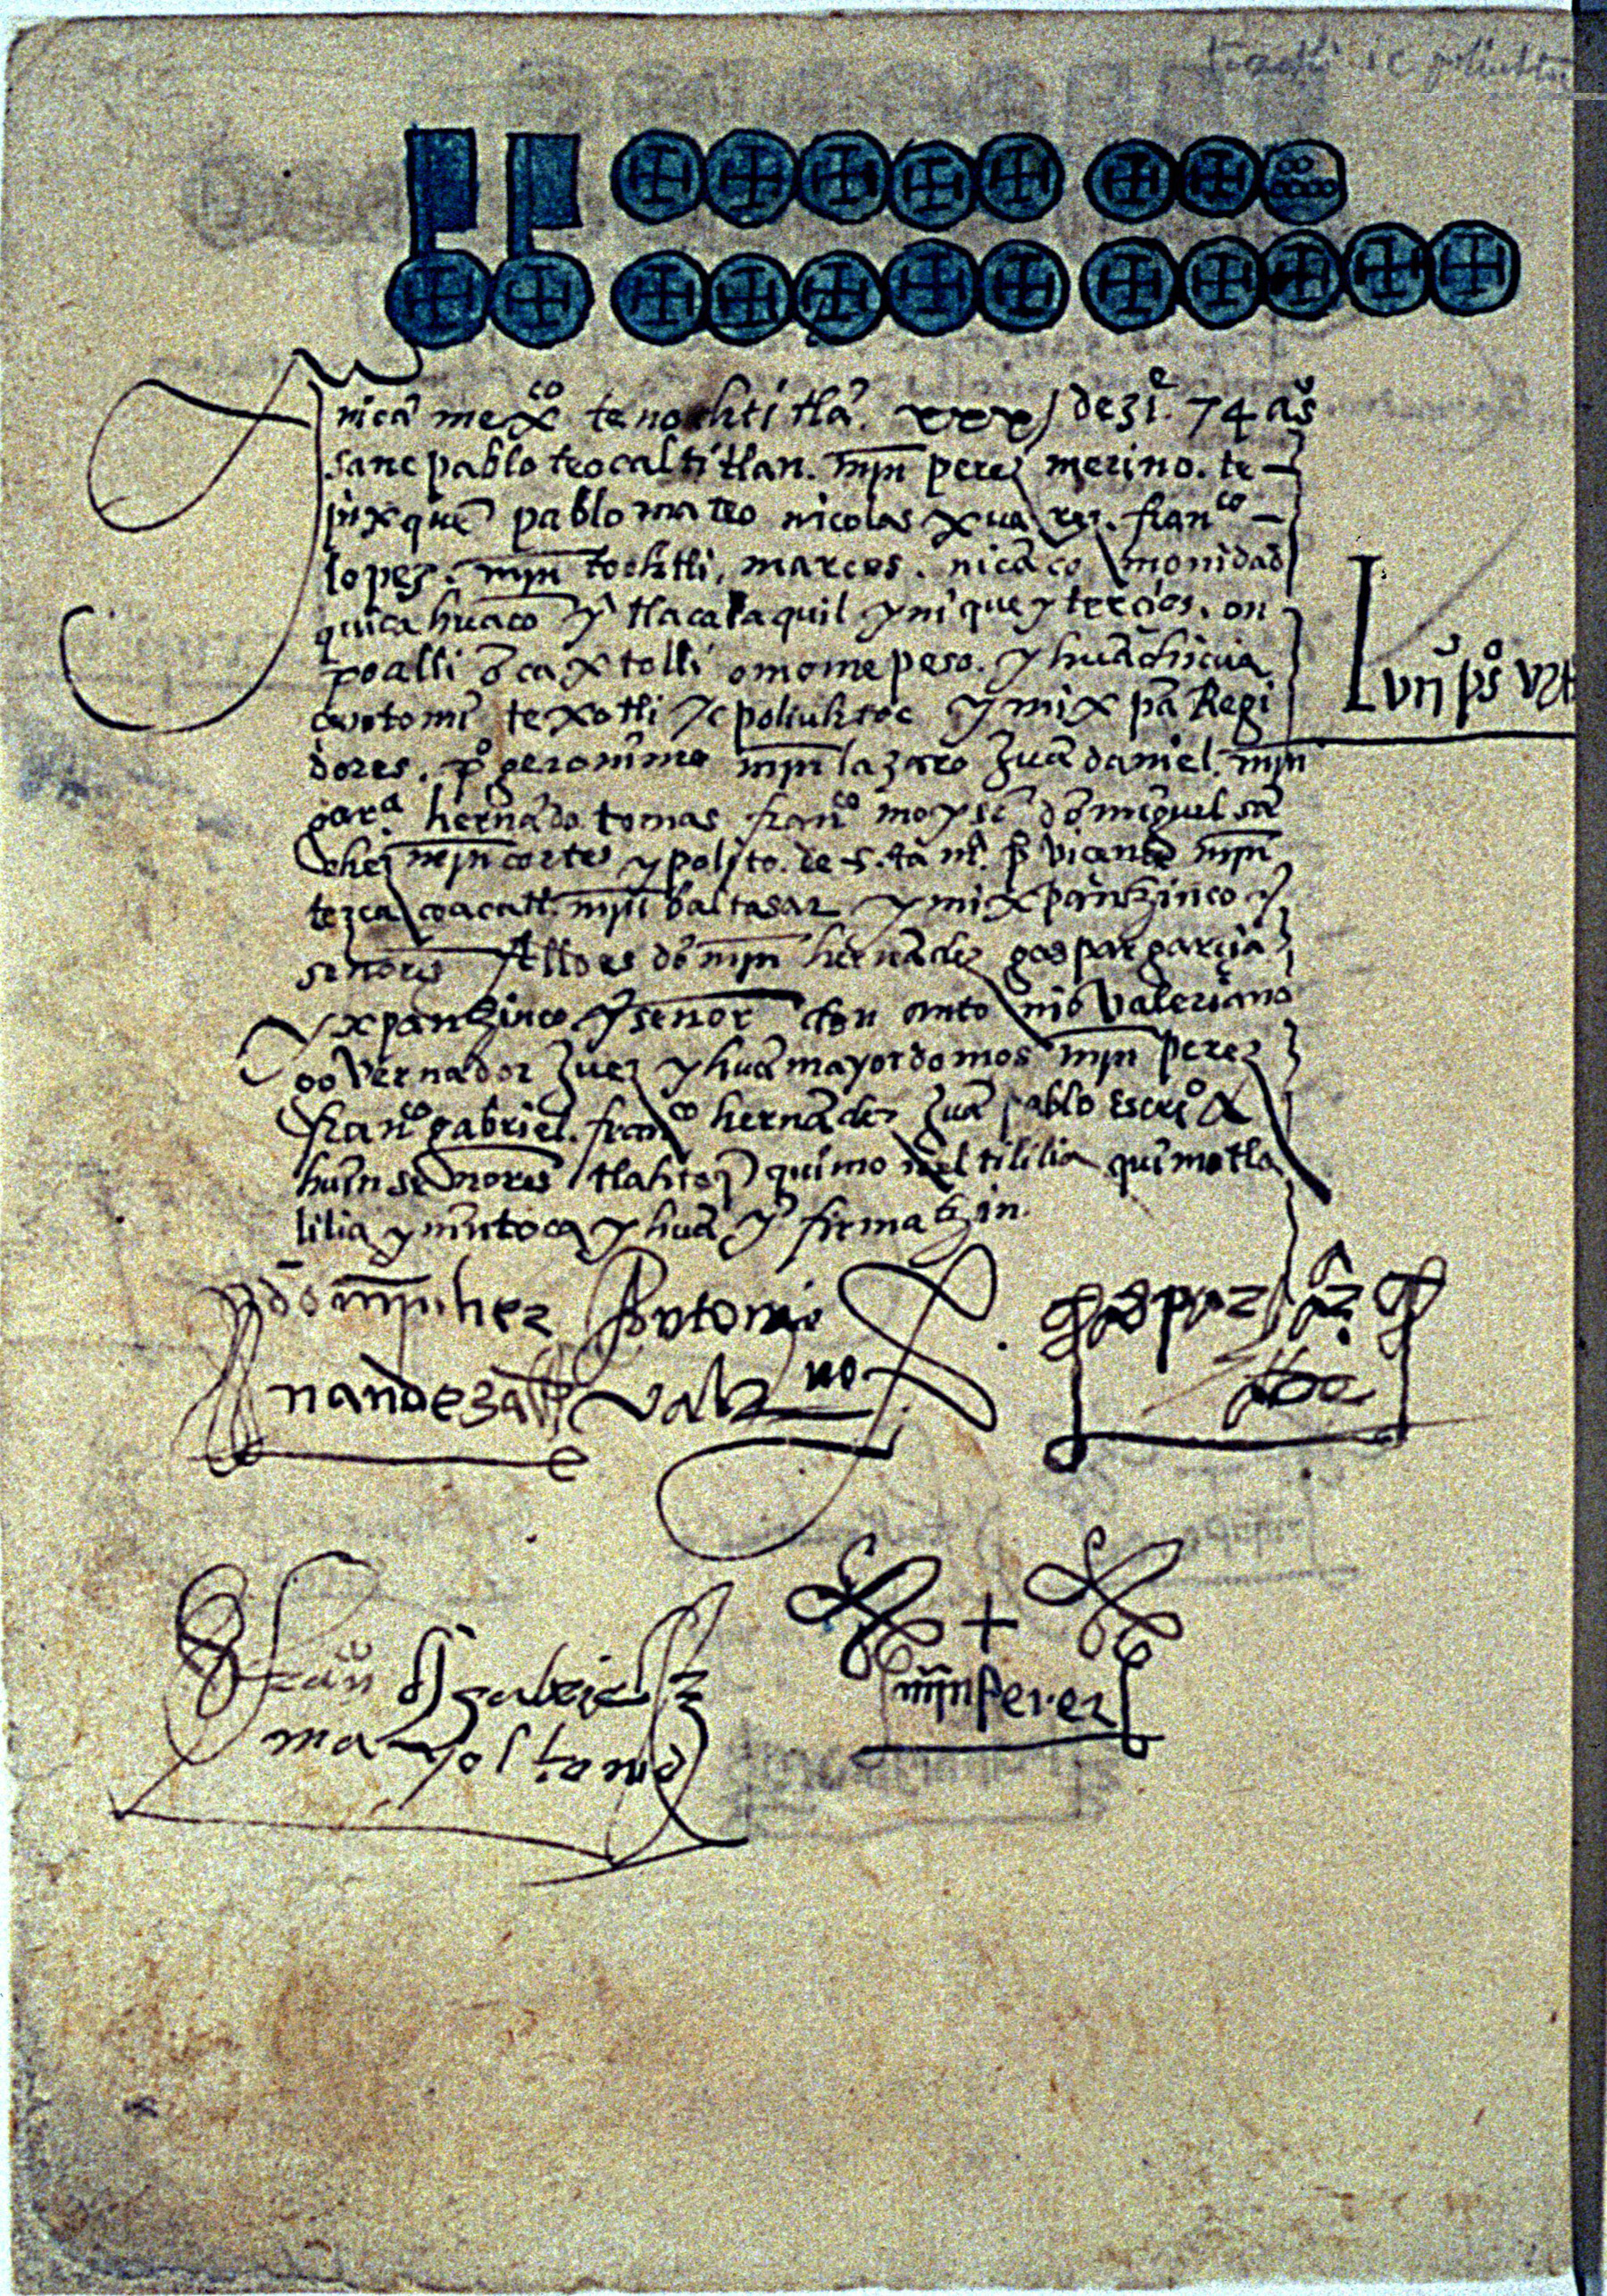 texotli ic poliuhtoc
nicā mexco tenochtitlā. xxxj de ziē. 74 aŝ
sanc pablo teocaltitlan. mīn perez merino. te
pixquē pablo mateo nicolas xuarez. franco
lopez. mīn tochtli, marcos. nicā co monidad
quicahuaco ȳ tlacalaquil yni quey tercios. on
poalli ō caxtolli omome peso. yhuā chicua
centomī texotli yc poliuhtoc ymixpā Regi
dores. po geronimo mīn lazaro Juā daniel. mīn
gara hernādo tomas franco moysē dō miguel sā
chez mīn cortes ypolito. de s. tā mā. po vicente mīn
tezcacoacatl. mīn baltasar ymixpantzinco y
senores Alldes dō mīn hernādez gaspar garçia
yxpantzinco ysenor don antonio Valeriano
governador Juez yhuā mayordomos mīn perez
franco gabriel. franco hernādez Juā pablo escrio
huin senores tlahtoq̄ quimo neltililia quimotla
lilia yn intoca yhuā ȳ firmatzin.
Lvij pos vj t
dō mīn her Antonio gaspar gra
nandez alld valeriano allde
franco gabriel
mayoltomo
mīn perez